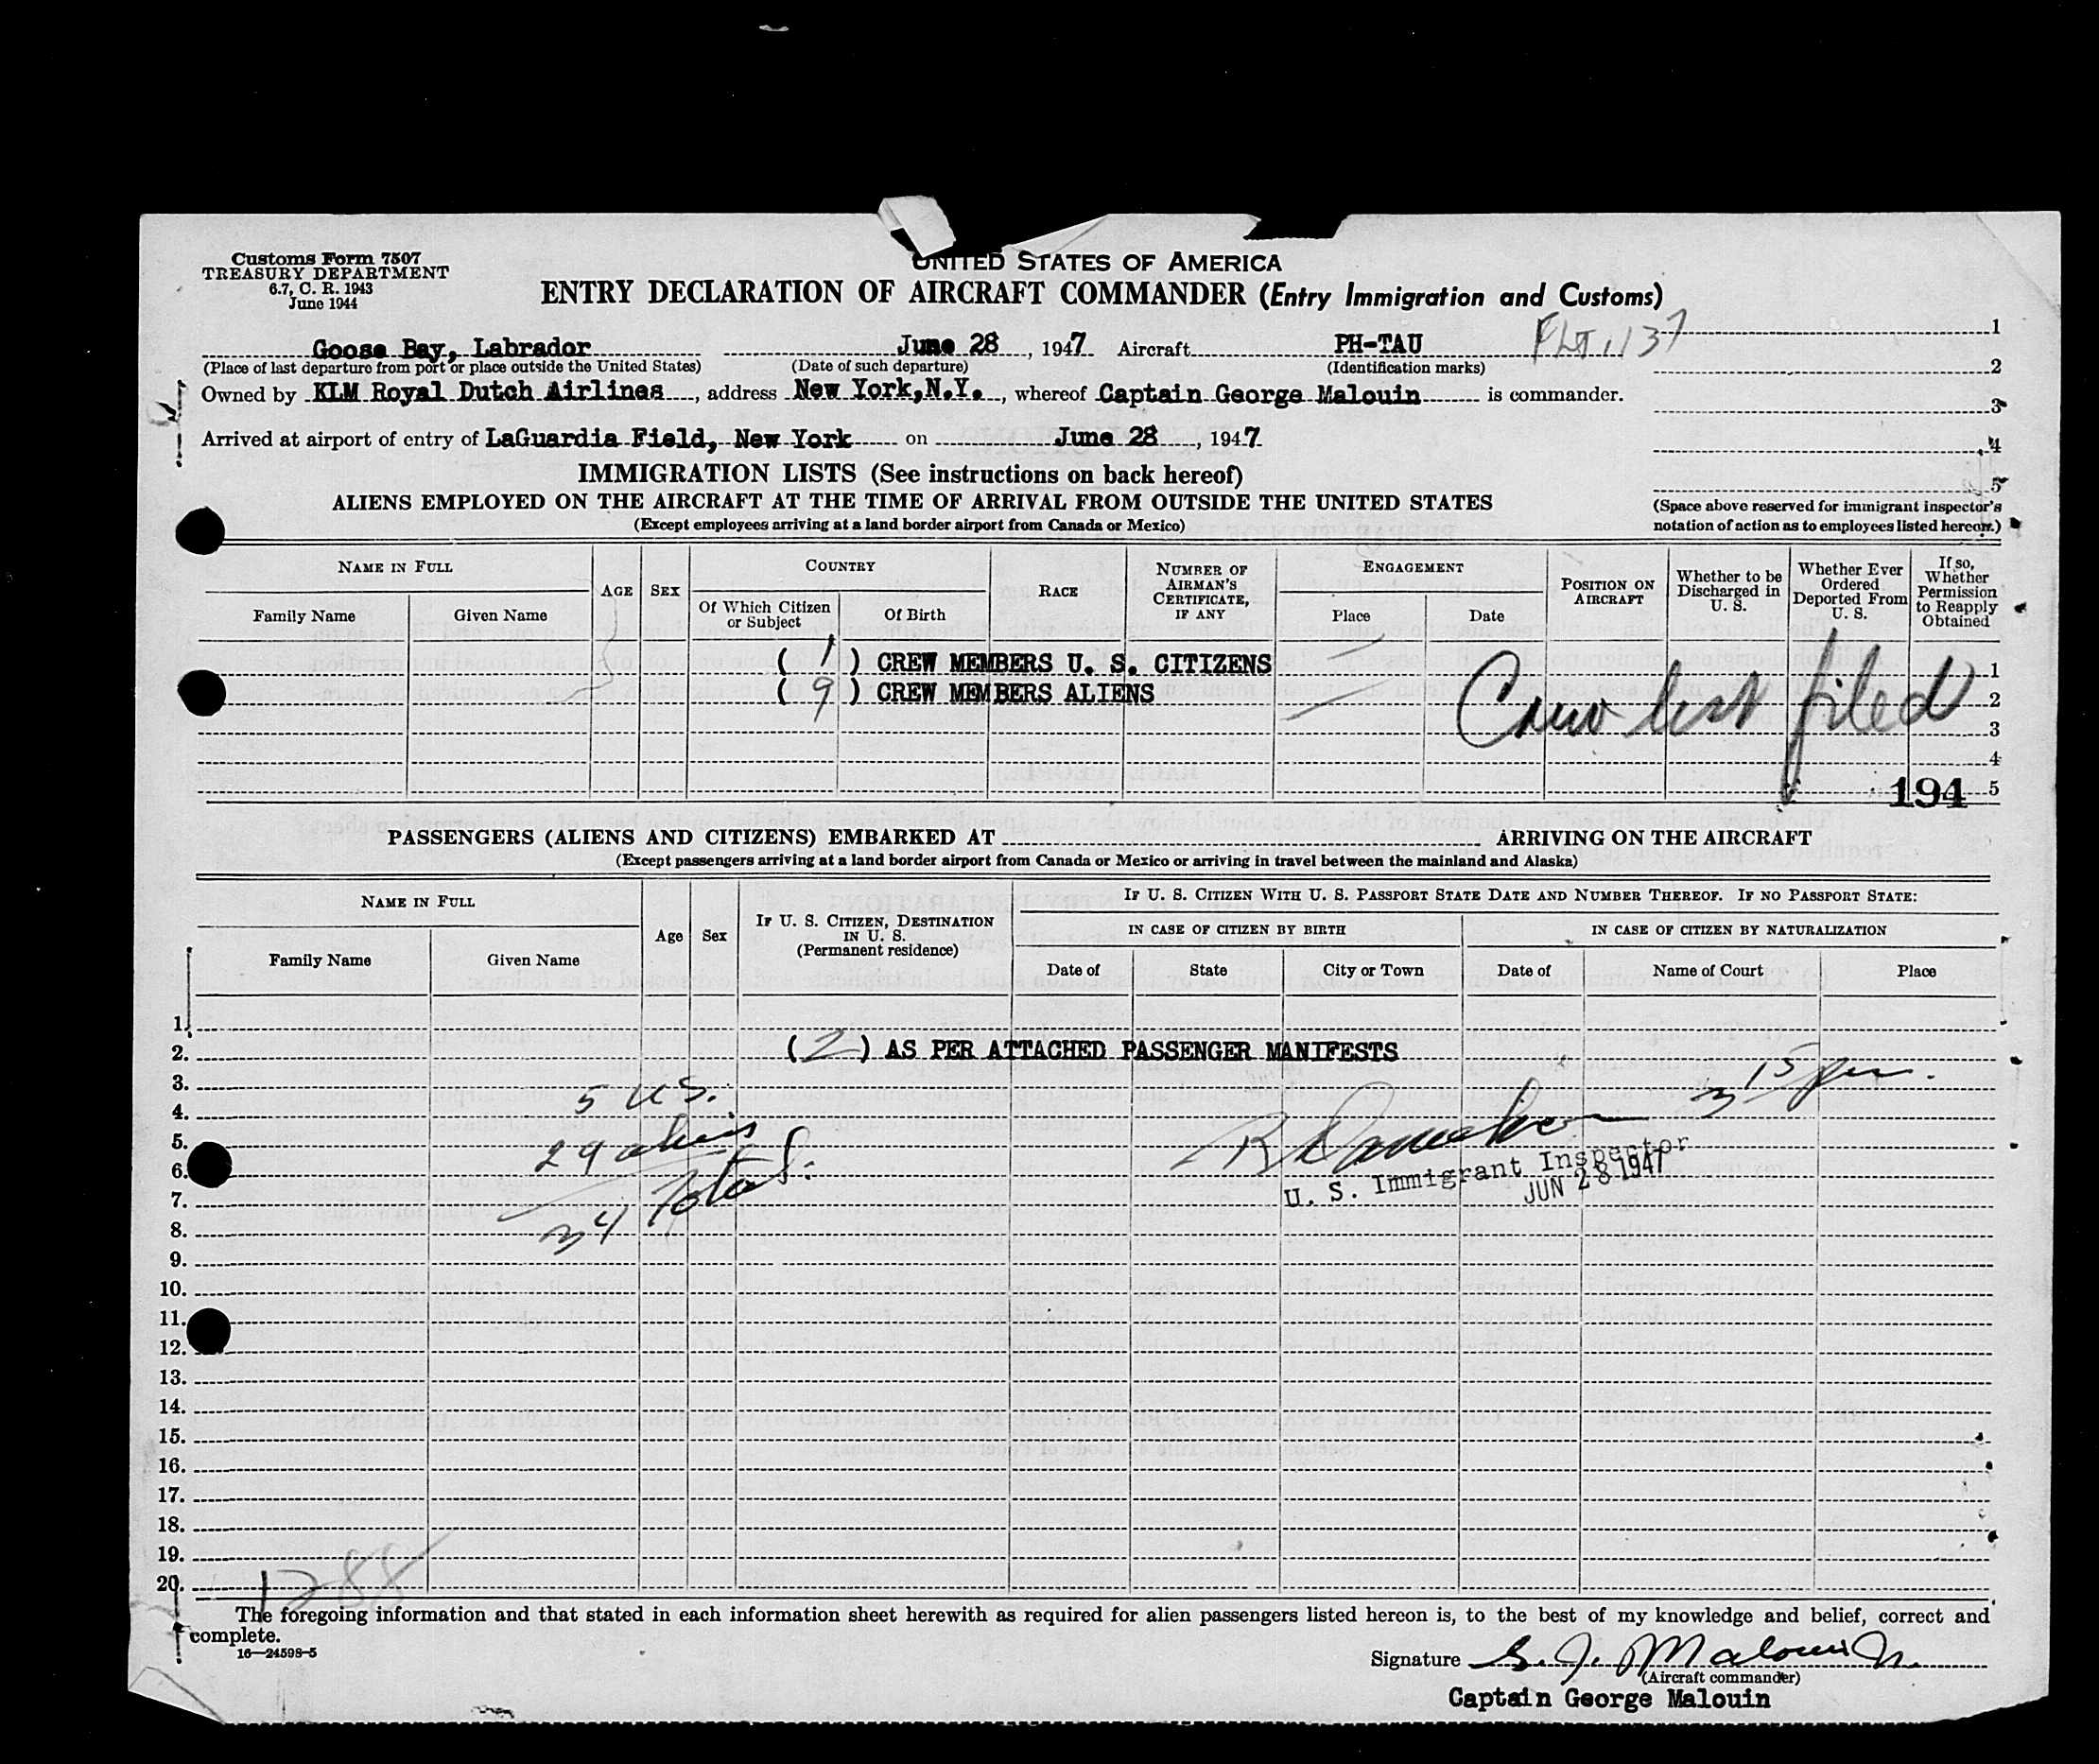 Customs Form 7507
TREASURY DEPARTMENT
6.7, C. R. 1943
June 1944
UNITED STATES OF AMERICA
ENTRY DECLARATION OF AIRCRAFT COMMANDER (Entry Immigration and Customs)
Goose Bay, Labrador June 28, 1947 Aircraft PH-TAU FLT 1137
(Place of last departure from port or place outside the United States) (Date of such departure) (Identification marks)
Owned by KLM Royal Dutch Airlines, address New York, N.Y., whereof Captain George Malouin is commander.
Arrived at airport of entry of LaGuardia Field, New York on June 28, 1947
1
2
3
4
5
(Space above reserved for immigrant inspector's
notation of action as to employees listed hereon.)
IMMIGRATION LISTS (See instructions on back hereof)
ALIENS EMPLOYED ON THE AIRCRAFT AT THE TIME OF ARRIVAL FROM OUTSIDE THE UNITED STATES
(Except employees arriving at a land border airport from Canada or Mexico)
NAME IN FULL
Family Name
Given Name
AGE
SEX
COUNTRY
Of Which Citizen
or Subject
Of Birth
RACE
NUMBER OF
AIRMAN'S
CERTIFICATE,
IF ANY
ENGAGEMENT
Place
Date
POSITION ON
AIRCRAFT
Whether to be
Discharged in
U. S.
Whether Ever
Ordered
Deported From
U. S.
If so,
Whether
Permission
to Reapply
Obtained
( 1 ) CREW MEMBERS U. S. CITIZENS 1
( 9 ) CREW MEMBERS ALIENS 2
Crew list filed
3
4
194 5
PASSENGERS (ALIENS AND CITIZENS) EMBARKED AT ARRIVING ON THE AIRCRAFT
(Except passengers arriving at a land border airport from Canada or Mexico or arriving in travel between the mainland and Alaska)
NAME IN FULL
Family Name
Given Name
Age
Sex
IF U. S. CITIZEN, DESTINATION
IN U. S.
(Permanent residence)
IF U. S. CITIZEN WITH U. S. PASSPORT STATE DATE AND NUMBER THEREOF. IF NO PASSPORT STATE:
IN CASE OF CITIZEN BY BIRTH
IN CASE OF CITIZEN BY NATURALIZATION
Date of
State
City or Town
Date of
Name of Court
Place
1.
2. ( 2 ) AS PER ATTACHED PASSENGER MANIFESTS
3. 3 15 pm.
4. 5 US.
5. 29 aliens
6. U. S. Immigrant Inspector
JUN 28 1947
7. Total
8. 34
9.
10.
11.
12.
13.
14.
15.
16.
17.
18.
19.
20. 1288
The foregoing information and that stated in each information sheet herewith as required for alien passengers listed hereon is, to the best of my knowledge and belief, correct and
complete.
16—24598-5
Signature G. J. Malouin
(Aircraft commander)
Captain George Malouin